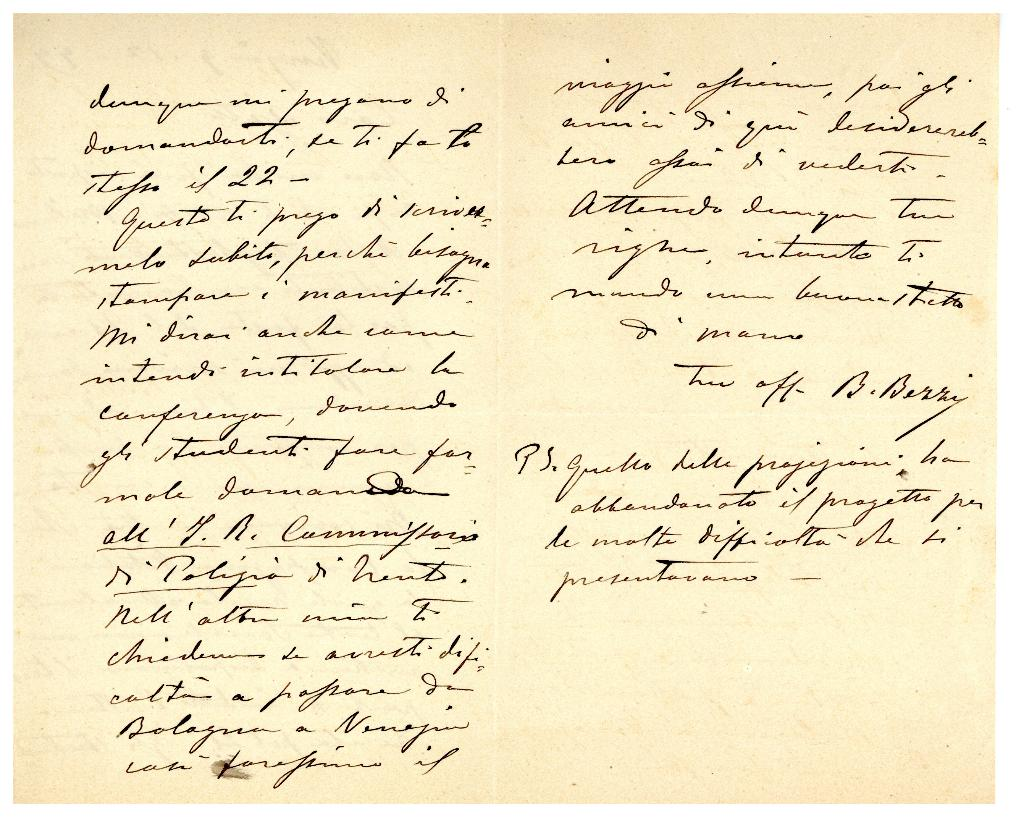 dunque mi pregano di
domandarti, se ti fa lo
stesso il 22 –
Questo ti prego di scriver=
melo subito, perchè bisogna
stampare i manifesti.
Mi dirai anche come
intendi intitolare la
conferenza, dovendo
gli studenti fare for=
male domanda
all' I. R. Commissario
di Polizia di Trento.
Nell' altra mia ti
chiedevo se avresti difi=
coltà a passare da
Bologna a Venezia
così faressimo il
viaggio assieme, poi gli
amici di quì desiderereb=
bero assai di vederti.
Attendo dunque tue
righe, intanto ti
mando una buona stretta
di mano
tuo aff. B. Bezzi
PS. Quello delle projezioni, ha
abbandonato il progetto per
le molte difficoltà che si
presentavano –